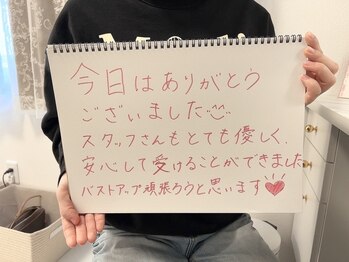 今日はありがとう
ございました
スタッフさんもとても優しく、
安心して受けることができました
バストアップ頑張ろうと思います